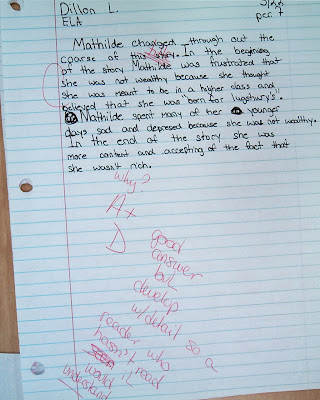 Dillon L.
ELA
per. 7
Mathilde changed through out the
coarse of this story. In the beginning
of the story Mathilde was frustrated that
she was not wealthy because she thought
she was meant to be in a higher class and
believed that she was born for lugsthury's".
Mathilde spent many of her younger
days, sad and depressed because she was not wealthy.
In the end of the story she was
more content and accepting of the fact that
she wasn't rich.
why?
A+
D
good
answer
but
develop
w/detail so a
reader who
hasn't read
it would
understand